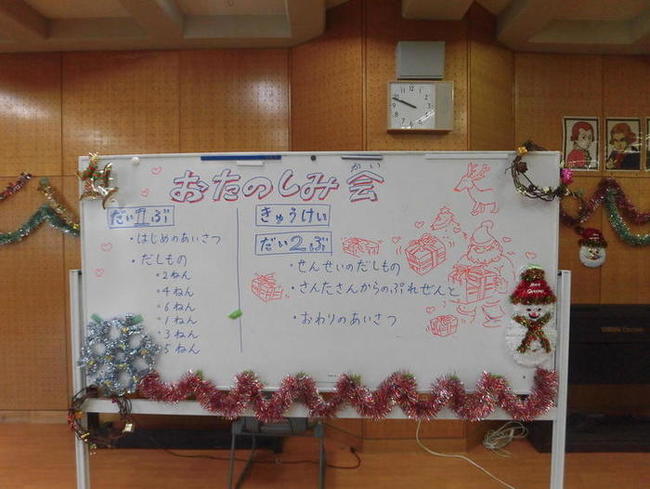 おたのしみ会
かい
だい1ぶ
・はじめのあいさつ
・だしもの
・2ねん
・4ねん
・6ねん
・1ねん
・3ねん
・5ねん
きゅうけい
だい2ぶ
・せんせいのだしもの
・さんたさんからのぷれぜんと
・おわりのあいさつ